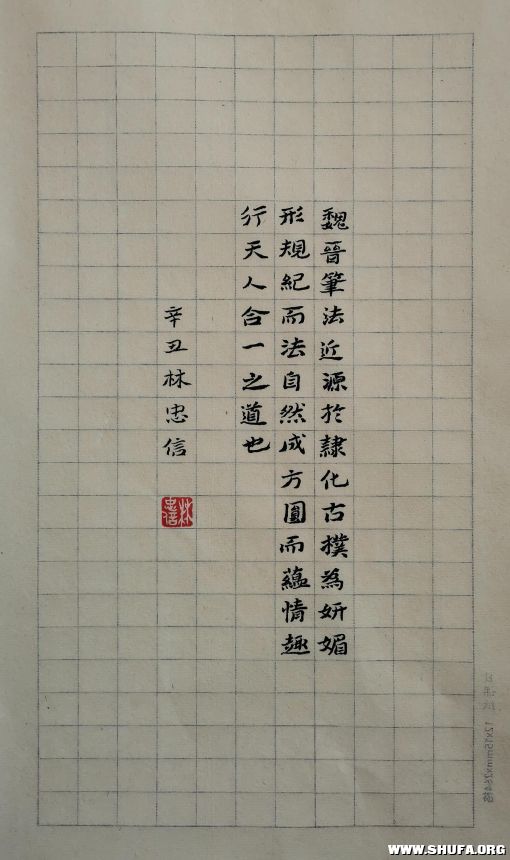 魏晉筆法近源於隷化古撲為妍媚
形規紀而法自然成方圓而蘊情趣
行天人合一之道也
辛丑林忠信
林忠信
WWW.SHUFA.ORG